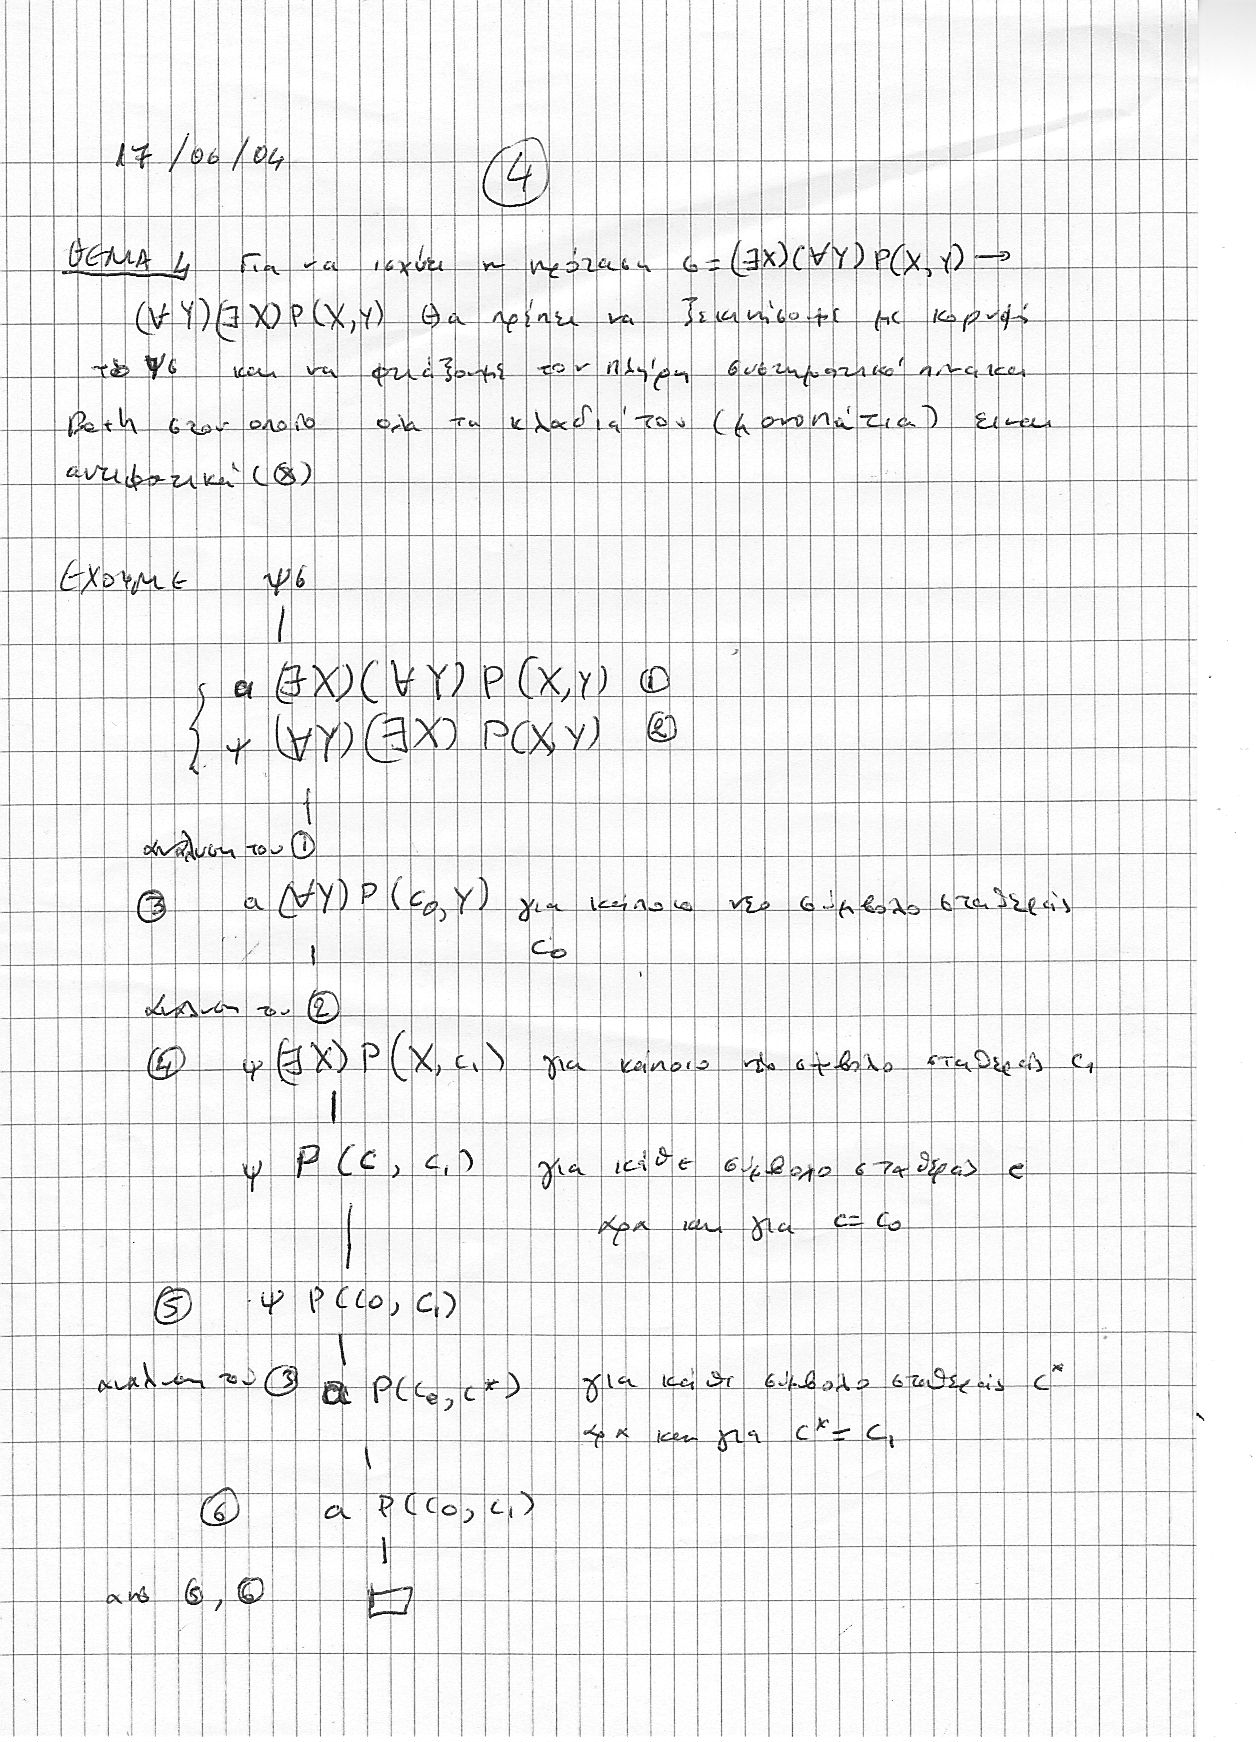 17/06/04
4
ΘΕΜΑ 4 Για να ισχύει η πρόταση σ=(∃X)(∀Y)P(X,Y)→
(∀Y)(∃X)P(X,Y) θα πρέπει να ξεκινήσουμε με κορυφή
το ψσ και να φτιάξουμε τον πλήρη συστηματικό πίνακα
Beth στον οποίο όλα τα κλαδιά του (μονοπάτια) είναι
αντιφατικά (⊗)
ΕΧΟΥΜΕ ψσ
α (∃X)(∀Y) P(X,Y) ①
ψ (∀Y)(∃X) P(X,Y) ②
ανάλυση του ①
③ α (∀Y) P(c₀,Y) για κάποιο νέο σύμβολο σταθεράς
c₀
ανάλυση του ②
④ ψ (∃X) P(X,c₁) για κάποιο νέο σύμβολο σταθεράς c₁
ψ P(c, c₁) για κάθε σύμβολο σταθεράς c
άρα και για c=c₀
⑤ ψ P(c₀, c₁)
ανάλυση του ③ α P(c₀, c*) για κάθε σύμβολο σταθεράς c*
άρα και για c*=c₁
⑥ α P(c₀, c₁)
από ⑤, ⑥